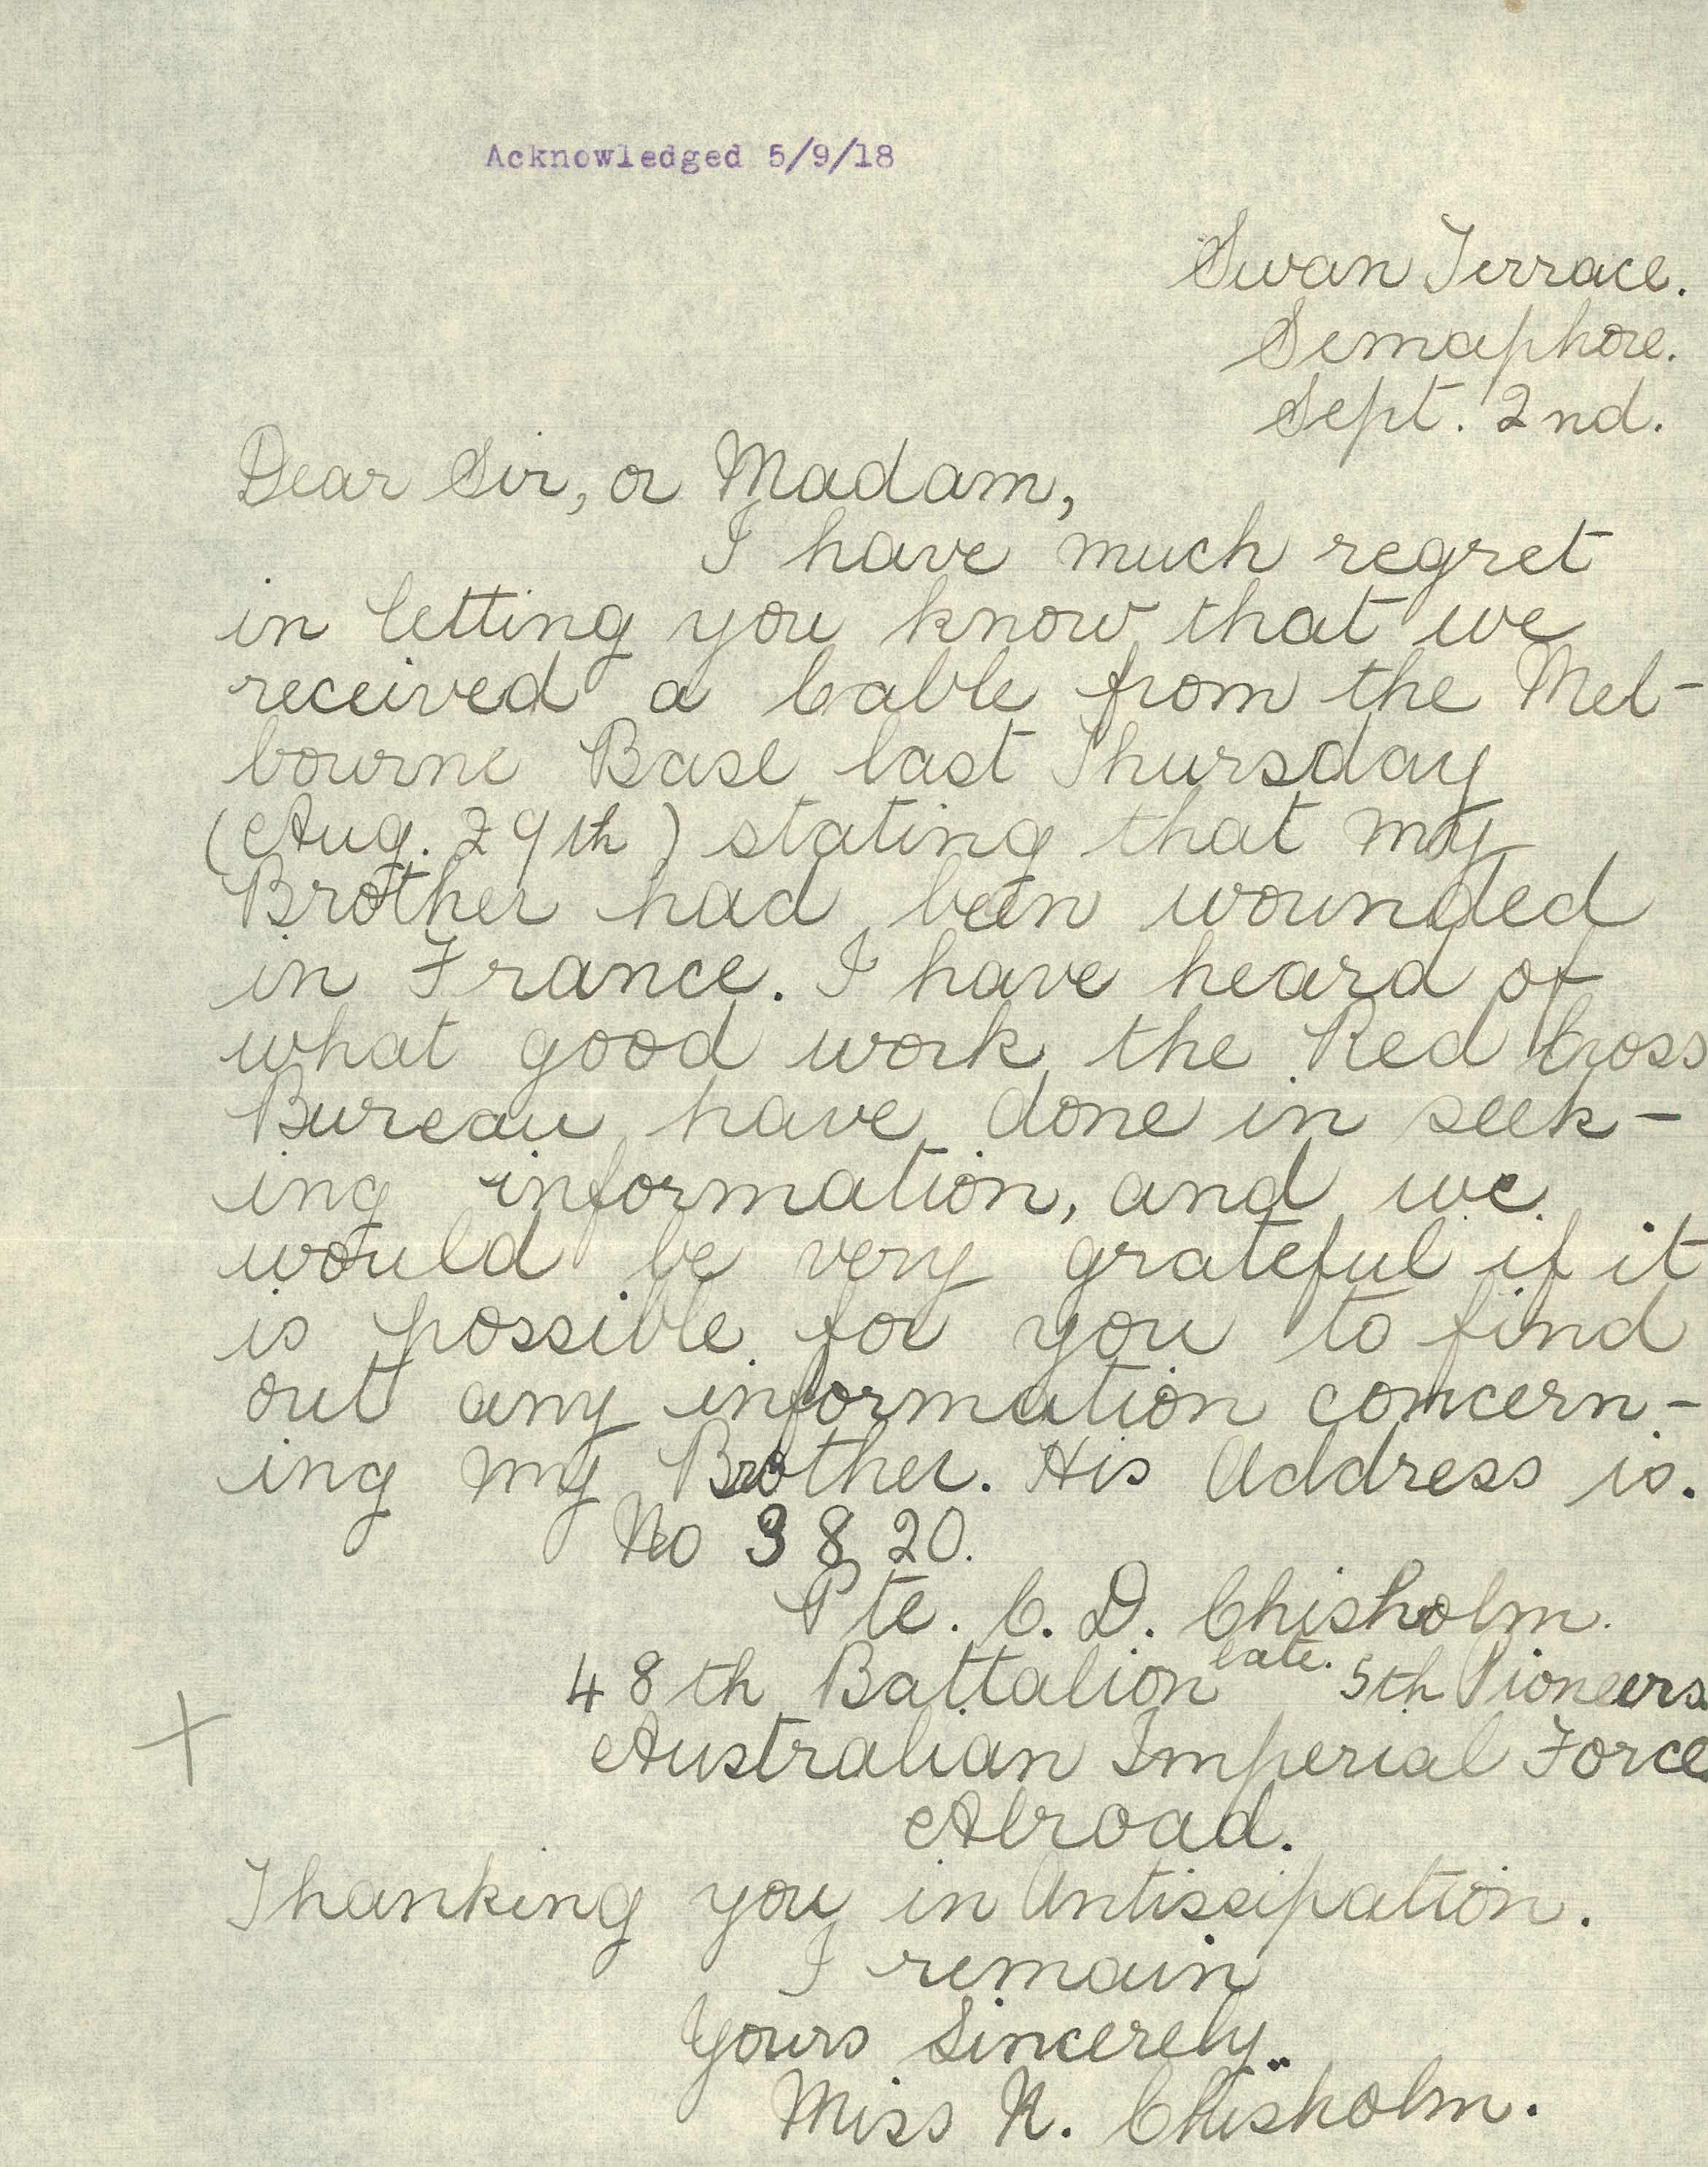 Acknowledged 5/9/18
Swan Terrace.
Semaphore.
Sept. 2nd.
Dear Sir, or Madam,
I have much regret
in letting you know that we
received a Cable from the Mel-
bourne Base last Thursday
(Aug. 29th) stating that my
Brother had been wounded
in France. I have heard of
what good work the Red Cross
Bureau have done in seek-
ing information, and we
would be very grateful if it
is possible for you to find
out any information concern-
ing my Brother. His Address is.
No 3820.
Pte. C. D. Chisholm.
48th Battalion late. 5th Pioneers
Australian Imperial Force
Abroad.
Thanking you in Antissipation.
I remain
Yours Sincerely..
Miss N. Chisholm.